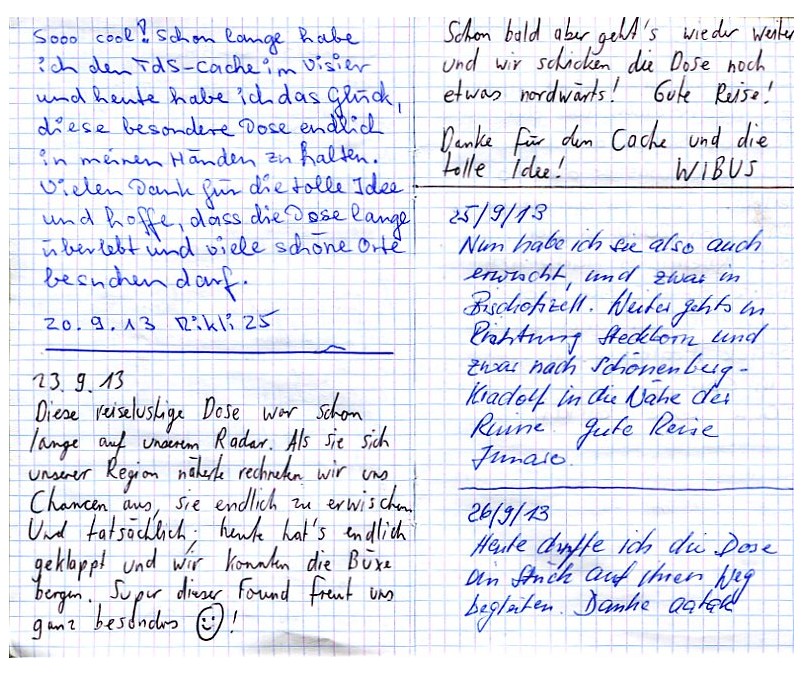 Sooo cool! Schon lange habe
ich den TdS-Cache im Visier
und heute habe ich das Glück,
diese besondere Dose endlich
in meinen Händen zu halten.
Vielen Dank für die tolle Idee
und hoffe, dass die Dose lange
überlebt und viele schöne Orte
besuchen darf.
20.9.13 Rikli25
23.9.13
Diese reiselustige Dose war schon
lange auf unserem Radar. Als sie sich
unserer Region näherte rechneten wir uns
Chancen aus, sie endlich zu erwischen.
Und tatsächlich, heute hat's endlich
geklappt und wir konnten die Büxe
bergen. Super dieser Found freut uns
ganz besonders ☺!
Schon bald aber geht's wieder weiter
und wir schicken die Dose noch
etwas nordwärts! Gute Reise!
Danke für den Cache und die
tolle Idee! WIBUS
25/9/13
Nun habe ich sie also auch
erwischt, und zwar in
Bischofszell. Weiter gehts in
Richtung Steckborn und
zwar nach Schönenberg-
Kradolf in die Nähe der
Ruine. Gute Reise
26/9/13
Heute durfte ich die Dose
ein Stück auf ihrem Weg
begleiten. Danke